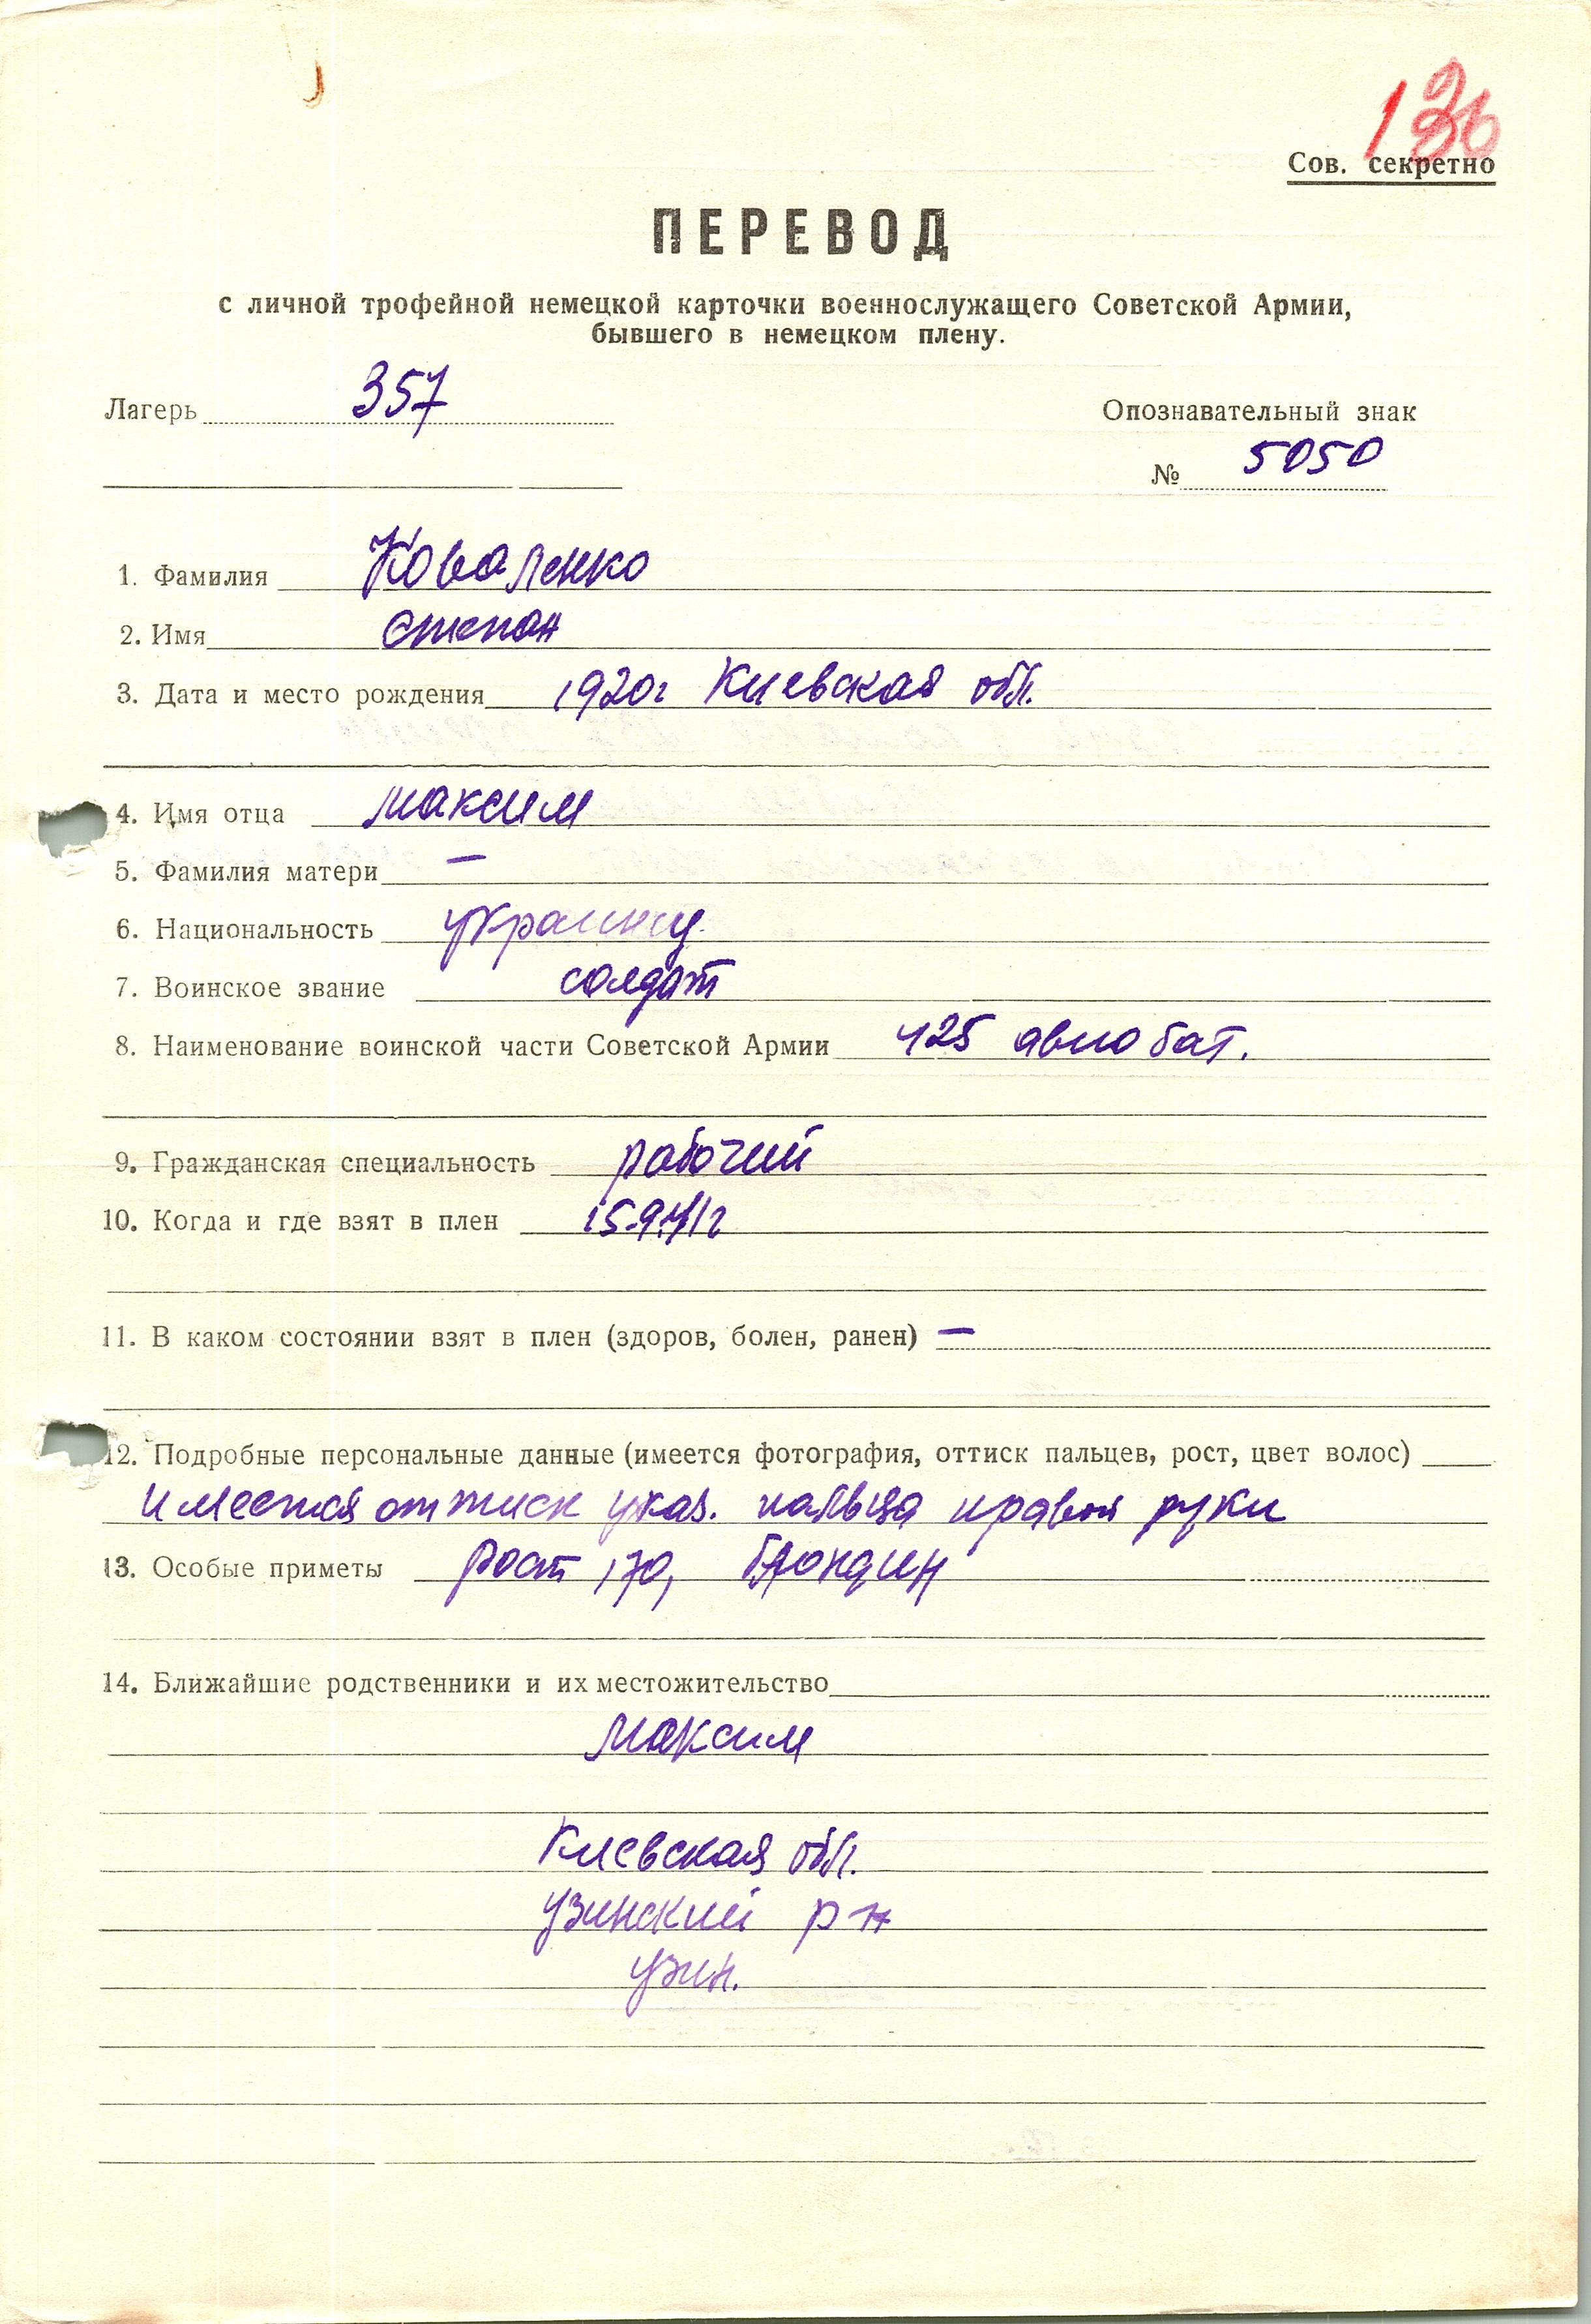 Сов. секретно
ПЕРЕВОД
с личной трофейной немецкой карточки военнослужащего Советской Армии,
бывшего в немецком плену.
Лагерь 357
Опознавательный знак
№ 5050
1. Фамилия Коваленко
2. Имя Степан
3. Дата и место рождения 1920г Киевская обл.
4. Имя отца Максим
5. Фамилия матери —
6. Национальность украинец
7. Воинское звание солдат
8. Наименование воинской части Советской Армии 425 авиобат.
9. Гражданская специальность рабочий
10. Когда и где взят в плен 15.9.41г
11. В каком состоянии взят в плен (здоров, болен, ранен) —
12. Подробные персональные данные (имеется фотография, оттиск пальцев, рост, цвет волос)
имеется оттиск указ. пальца правой руки
13. Особые приметы рост 170, блондин
14. Ближайшие родственники и их местожительство
Максим
Киевская обл.
Узинский р-н
Узин.